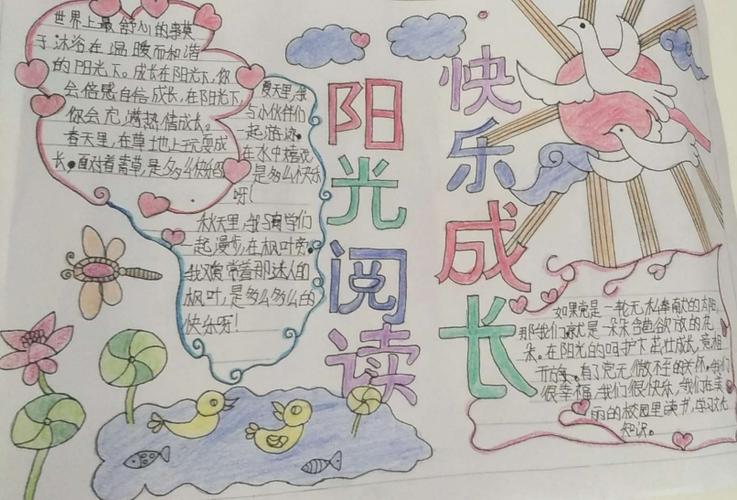 世界上最舒心的事莫
于沐浴在温暖而和谐
的阳光下。成长在阳光下,你
会倍感自信成长。在阳光下,
你会充满热情成长。
春天里,在草地上玩耍成
长。面对着青草,是多么快乐
夏天里,
与小伙伴们
一起游泳。
在水中嬉戏
是多么快乐
呀!
秋天里,与同学们
一起漫步,在枫叶旁。
我观赏着那迷人的
枫叶,是多么多么的
快乐呀!
阳光阅读
快乐成长
如果党是一轮无私奉献的太阳,
那我们就是一朵朵含苞欲放的花
朵。在阳光的呵护下茁壮成长,竞相
开放。有了党无微不至的关怀,我们
很幸福,我们很快乐,我们在美
丽的校园里读书,学习
知识。